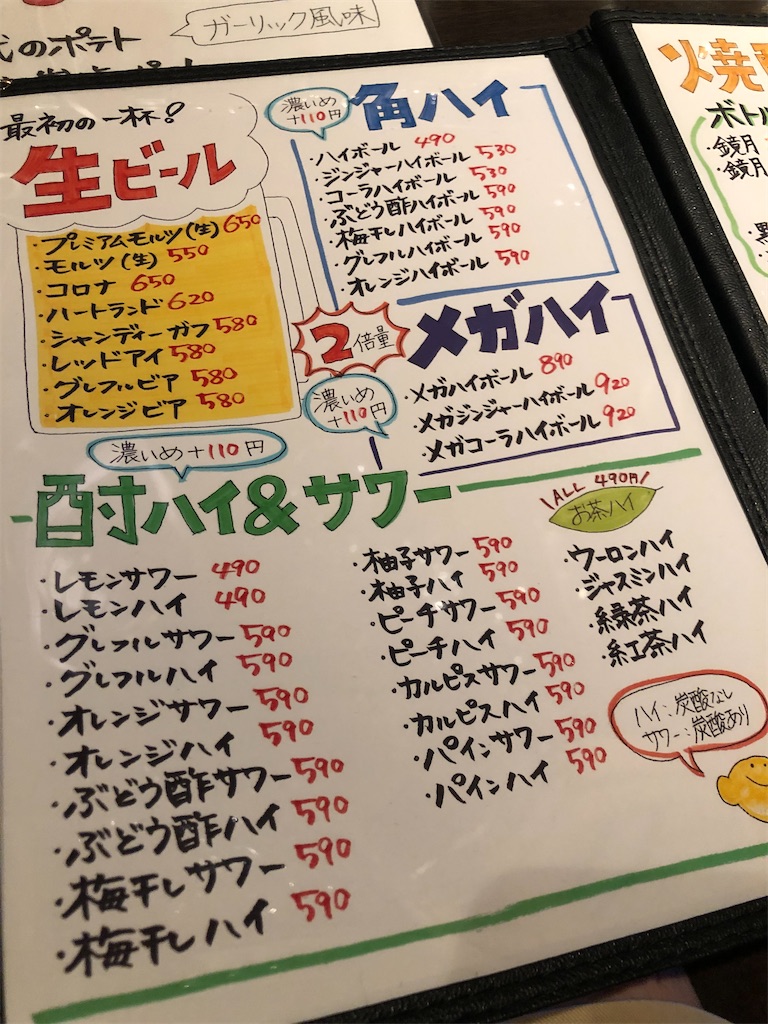 ガーリック風味
のポテト
最初の一杯!
生ビール
・プレミアムモルツ(生) 650
・モルツ(生) 550
・コロナ 650
・ハートランド 620
・シャンディーガフ 580
・レッドアイ 580
・グレフルビア 580
・オレンジビア 580
濃いめ
+110円
角ハイ
・ハイボール 490
・ジンジャーハイボール 530
・コーラハイボール 530
・ぶどう酢ハイボール 590
・梅干しハイボール 590
・グレフルハイボール 590
・オレンジハイボール 590
2倍量
メガハイ
濃いめ
+110円
・メガハイボール 890
・メガジンジャーハイボール 920
・メガコーラハイボール 920
濃いめ+110円
酎ハイ&サワー
・レモンサワー 490
・レモンハイ 490
・グレフルサワー 590
・グレフルハイ 590
・オレンジサワー 590
・オレンジハイ 590
・ぶどう酢サワー 590
・ぶどう酢ハイ 590
・梅干しサワー 590
・梅干しハイ 590
・柚子サワー 590
・柚子ハイ 590
・ピーチサワー 590
・ピーチハイ 590
・カルピスサワー 590
・カルピスハイ 590
・パインサワー 590
・パインハイ 590
\ALL 490円/
お茶ハイ
・ウーロンハイ
・ジャスミンハイ
・緑茶ハイ
・紅茶ハイ
ハイ:炭酸なし
サワー:炭酸あり
焼
ボトル
・鏡月
・鏡月